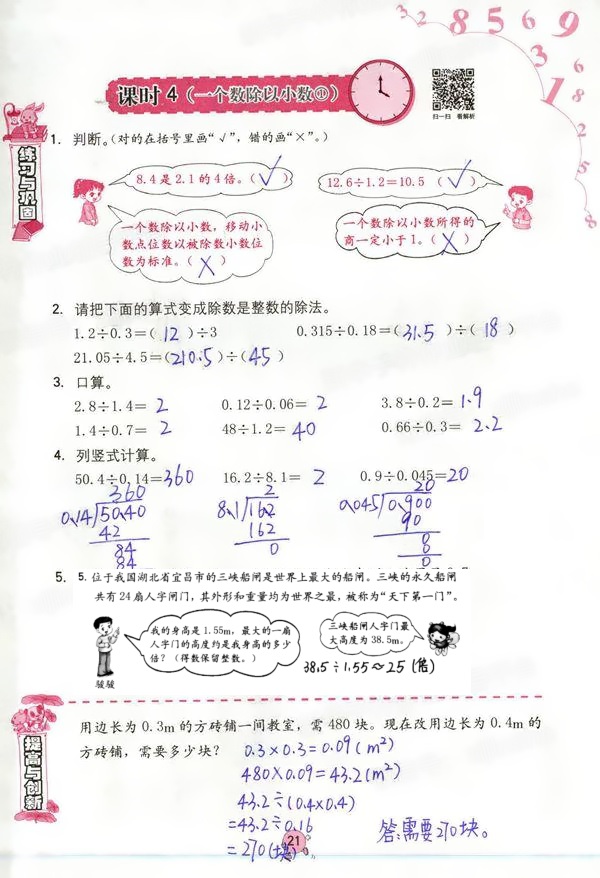 3 2 8 5 6 9 3 1 6 8 2 5 8
课时 4（一个数除以小数①）
扫一扫 看解析
练习与巩固
1. 判断。(对的在括号里画“√”，错的画“×”。)
8.4 是 2.1 的 4 倍。(√)
12.6÷1.2=10.5 (√)
一个数除以小数，移动小
数点位数以被除数小数位
数为标准。(X)
一个数除以小数所得的
商一定小于 1。(X)
2. 请把下面的算式变成除数是整数的除法。
1.2÷0.3=(12)÷3 0.315÷0.18=(31.5)÷(18)
21.05÷4.5=(210.5)÷(45)
3. 口算。
2.8÷1.4= 2 0.12÷0.06= 2 3.8÷0.2= 1.9
1.4÷0.7= 2 48÷1.2= 40 0.66÷0.3= 2.2
4. 列竖式计算。
50.4÷0.14=360 16.2÷8.1= 2 0.9÷0.045=20
360 2 20
0.14 50.40 8.1 162 0.045 0.900
42 162 90
84 0 0
84 0
0
5. 5. 位于我国湖北省宜昌市的三峡船闸是世界上最大的船闸。三峡的永久船闸
共有 24 扇人字闸门，其外形和重量均为世界之最，被称为“天下第一门”。
我的身高是 1.55m，最大的一扇
人字门的高度约是我身高的多少
倍？（得数保留整数。）
骏骏
三峡船闸人字门最
大高度为 38.5m。
38.5÷1.55≈25 (倍)
提高与创新
用边长为 0.3m 的方砖铺一间教室，需 480 块。现在改用边长为 0.4m 的
方砖铺，需要多少块？
0.3×0.3=0.09(m²)
480×0.09=43.2(m²)
43.2÷(0.4×0.4)
=43.2÷0.16
=270(块)
答:需要270块。
21